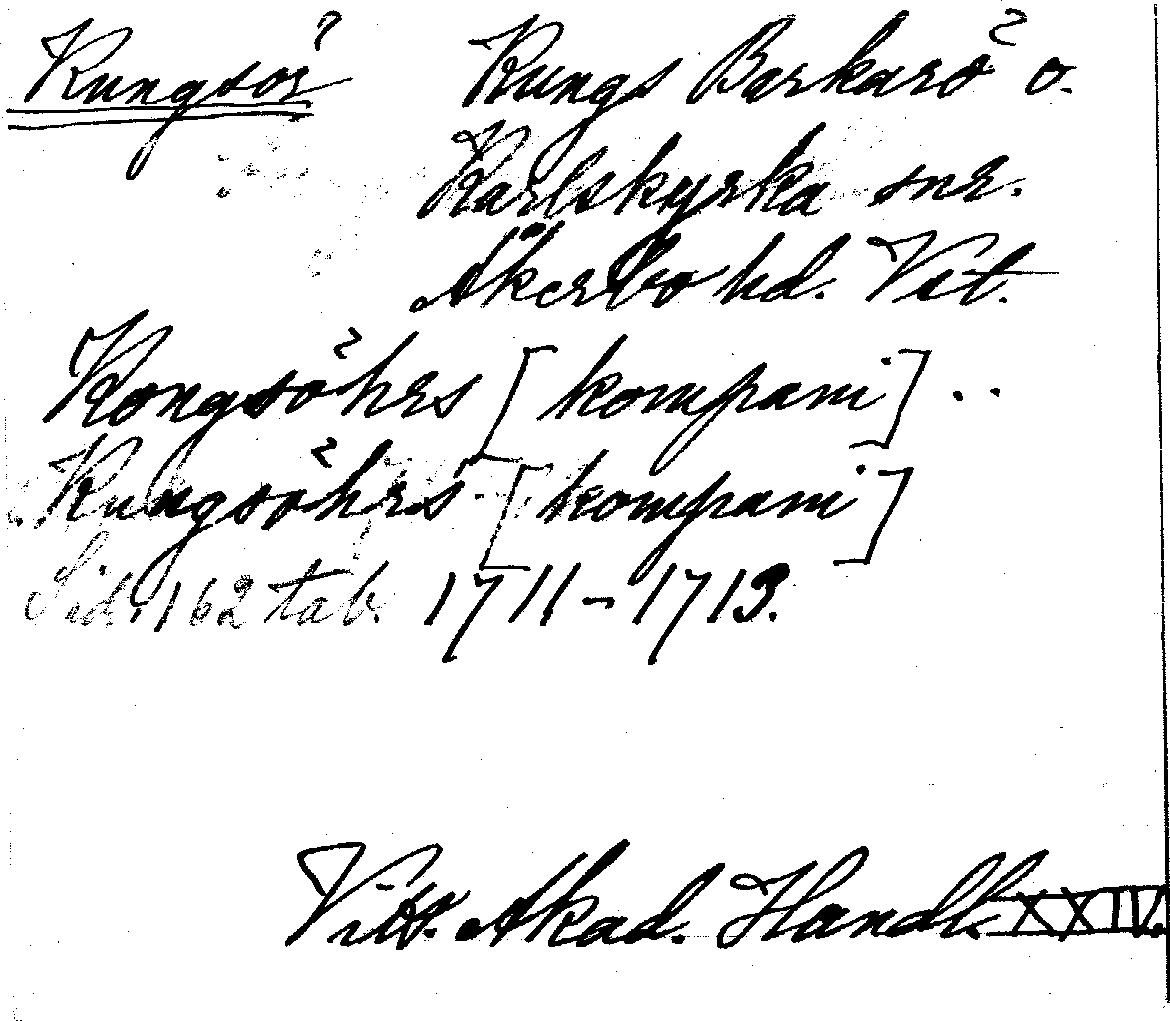 Kungsör Kungs Barkarö o.
Karlskyrka snr.
Åkerbo hd. Vstl.
Kongsöhrs [kompani] ..
Kungsöhrs [kompani]
Sid. 162 tab. 1711-1713.
Vitt. Akad. Handl. XXIV.